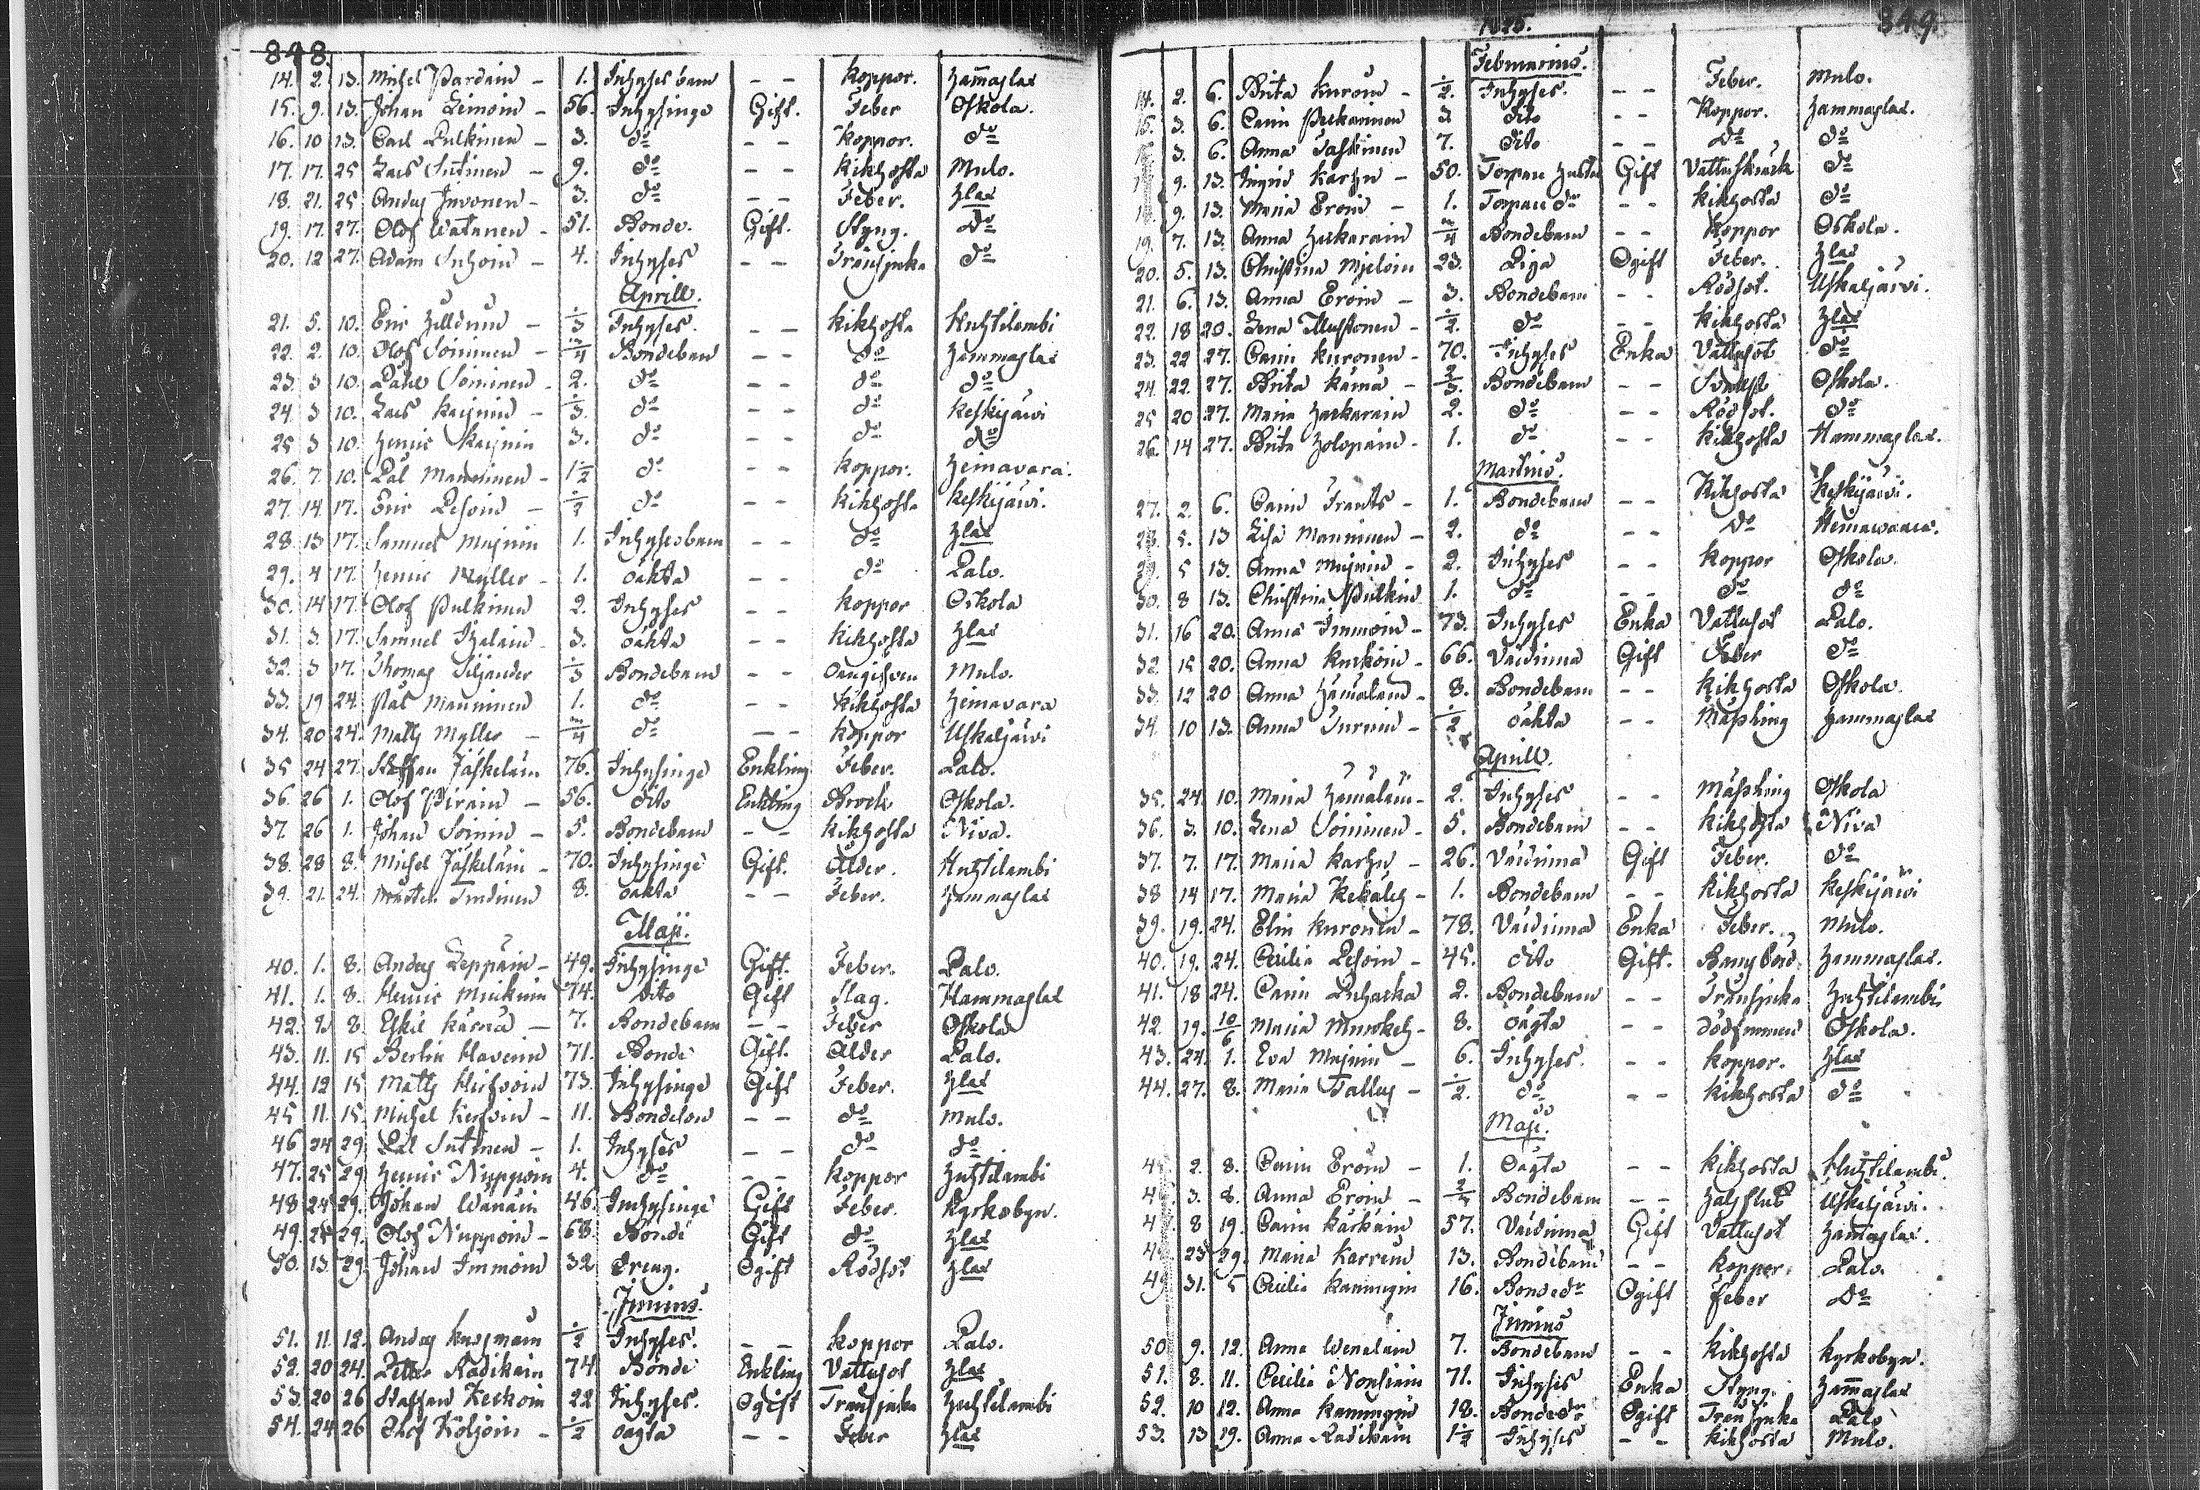 848.
14. 2. 13. Michel Pardain - 1. Inhyses barn - - koppor. Hammaslax
15. 9. 13. Johan Leinoin - 56. Inhysinge Gift. Feber Oskola.
16. 10 13. Carl Pulkinen - 3. do - - koppor. do
17. 17. 25 Lars Sutinen - 9. do - - kikhosta Mulo.
18. 21. 25 Anders Invonen - 3. do - - Feber. Hlax
19. 17. 27. Olof Watanen - 51. Bonde. Gift. Styng. do
20. 12 27. Adam Inhoin - 4. Inhyses - - Transjuka do
Aprill.
21. 5. 10. Eric - 1/3 Inhyses. - - kikhosta Huhtilambi
22. 2. 10. Olof Soininen - m/4 Bondebarn - - do Hammaslax
23. 3 10. Påhl Soininen - 2. do - - do do
24. 3 10. Lars kaisnin - 1/3. do - - do keskijäwi
25 3 10. Henric kaisnin 3. do - - do do
26. 7. 10. Pål Manninen - 1 1/2 do - - koppor. Heinavara.
27. 14. 17. Eric Pesoin - 1/2 do - - kikhosta keskijäwi.
28. 13 17. Samuel Mujnin 1. Inhyses barn - - do Hlax
29. 4 17. Henric Myller - 1. oäkta - - do Palo.
30. 14 17. Olof Pulkinen 2. Inhyses - - koppor Oskola
31. 3. 17. Samuel Ihalain 3. oäkta - - kikhosta Hlax
32. 3 17. Thomas Siljander 1/3 Bondebarn - - Mulo.
33. 19 24. Pål Manninen 1. do - - kikhosta Heinavara
34. 20 24. Matts Myller - m/4 do - - koppor Uskaljäwi
35 24 27. Staffan Jäskelain 76. Inhysinge Enkling Feber. Palo.
36. 26 1. Olof Pirain - 56. dito Enkling Brock Oskola.
37. 26 1. Johan Soinin - 5. Bondebarn - - kikhosta Niva.
38. 28 8. Michel Jäskelain - 70. Inhysinge Gift. Ålder. Huhtilambi
39. 21. 24. Mårten Turdinen 8. oäkta - - Feber. Hammaslax
Maji.
40. 1. 8. Anders Leppäin - 49. Inhysinge Gift. Feber. Palo.
41. 1. 8. Henric Mickinin 74. dito Gift Slag. Hammaslax
42. 2. 8. Eskil kärnä - 7. Bondebarn - - Feber Oskola
43. 11. 15 Bertin Havenin 71. Bonde Gift. Ålder Palo.
44. 12 15 Matts Hirfvoin 73. Inhysinge Gift Feber. Hlax
45 11. 15. Michel - 11. Bondeson - - do Mulo.
46 24 29. Pål Sutinen - 1. Inhyses - - do do
47. 25 29 Henric Nuppoin 4. do - - koppor Huhtilambi
48 24 29. Johan Wänäin 46. Inhysinge Gift Feber. Kyrkobyn.
49. 25 29. Olof Nuppoin - 68. Bonde Gift do Hlax
50. 13. 29. Johan Immoin 32 Dreng. Ogift Rödsot Hlax
Junius.
51. 11. 12. Anders kusmain 1/2 Inhyses. - - koppor Palo.
52. 20 24. Petter Radikain 74 Bonde Enkling Vattusot Hlax
53. 20 26 Staffan Keckoin 22 Inhyses. Ogift Transjuka Huhtilambi
54. 24 26 Olof Koljoin - 1/2 oägta - - Feber Hlax
1825. 849.
Februarius.
14. 2. 6. Brita kuroin - 1/2. Inhyses. - - Feber. Mulo.
15. 3. 6. Carin Pickarinen 3. dito - - Koppor. Hammaslax.
3. 6. Anna Taskinen 7. dito - - do do
9. 13. Ingrid karhu - 50. Torpare hustru Gift do
9. 13. Maria Eroin - 1. Torpare dr - - kikhosta do
19. 7. 13. Anna Hackarain m/4 Bondebarn - - Koppor Oskola.
20. 5. 13. Christina Mjeloin 23. Piga Ogift Feber. Hlax
21. 6. 13. Anna Eroin - 3. Bondebarn - - Rödsot. Uskaljärvi.
22. 18 20. Lena Mustonen - 1/2. do - - kikhosta Hlax
23. 22 27. Carin kuronen - 70. Inhyses Enka Vattusot do
24. 22. 27. Brita kärnä - 2/3. Bondebarn - - Oskola.
25 20 27. Maria Hackarain 2. do - - Rödsot. do
26. 14 27. Brita Holopain - 1. do - - kikhosta Hammaslax.
Martius.
27. 2. 6. Carin Frants - 1. Bondebarn - - Kikhosta keskijärvi.
5. 13 Lisa Manninen - 2. do - - do Heinawaara.
29. 5 13. Anna Mujnin - 2. Inhyses - - koppor Oskola.
30. 8 13. Christina Pulkin 1. do - - do do
31. 16 20. Anna Immoin - 73. Inhyses Enka Vattusot Palo.
32. 15 20. Anna kurkoin - 66. Värdinna Gift Feber do
33. 12 20 Anna Hämäläin - 8. Bondebarn - - kikhosta Oskola.
34. 10 13. Anna Turuin - 1/2 oäkta - - Mäsling Hammaslax
Aprill.
35. 24. 10. Maria Hämäläin - 2. Inhyses - - Mäsling Oskola
36. 3. 10. Lena Soininen - 5. Bondebarn - - kikhosta Niva
37. 7. 17. Maria karhu - 26. Värdinna Gift Feber. do
38 14 17. Maria Kekäles - 1. Bondebarn - - kikhosta keskijäwi
39. 19. 24. Elin kuronin - 78. Värdinna Enka Feber. Mulo.
40. 19. 24. Cecilia Pesoin - 45. dito Gift. Barnsbörd Hammaslax.
41. 18 24. Carin Puhacka 2. Bondebarn - - Transjuka Huhtilambi
42. 19. 10/6 Maria - 8. oägta - - Oskola.
43. 24. 1. Eva Mujnin - 6. Inhyses. - - koppor. Hlax
44. 27. 8. Maria Tallus - 1/2. do - - kikhosta do
Maji.
2. 8. Carin Eroin - 1. Oägta - - kikhosta Huhtilambi
3. 8. Anna Eroin - 2/4 Bondebarn - - Halsfluss Uskaljäwi.
8 19. Carin kärkäin 57. Värdinna Gift Vattusot Hammaslax.
23 29. Maria karrein 13. Bondebarn - - koppor. Palo.
49 31. 5 Cecilia kanningin 16. Bonde dr Ogift feber do
Junius
50. 9. 12. Anna Wenalain 7. Bondebarn - - kikhosta kyrkobyn.
51. 8. 11. Cecilia Nousiain 71. Inhyses Enka Styng. Hammaslax
52. 10 12. Anna kanningin 18. Bonde dr Ogift Transjuka Palo
53. 13 19. Anna Radikain 1 1/2 Inhyses - - kikhosta Mulo.